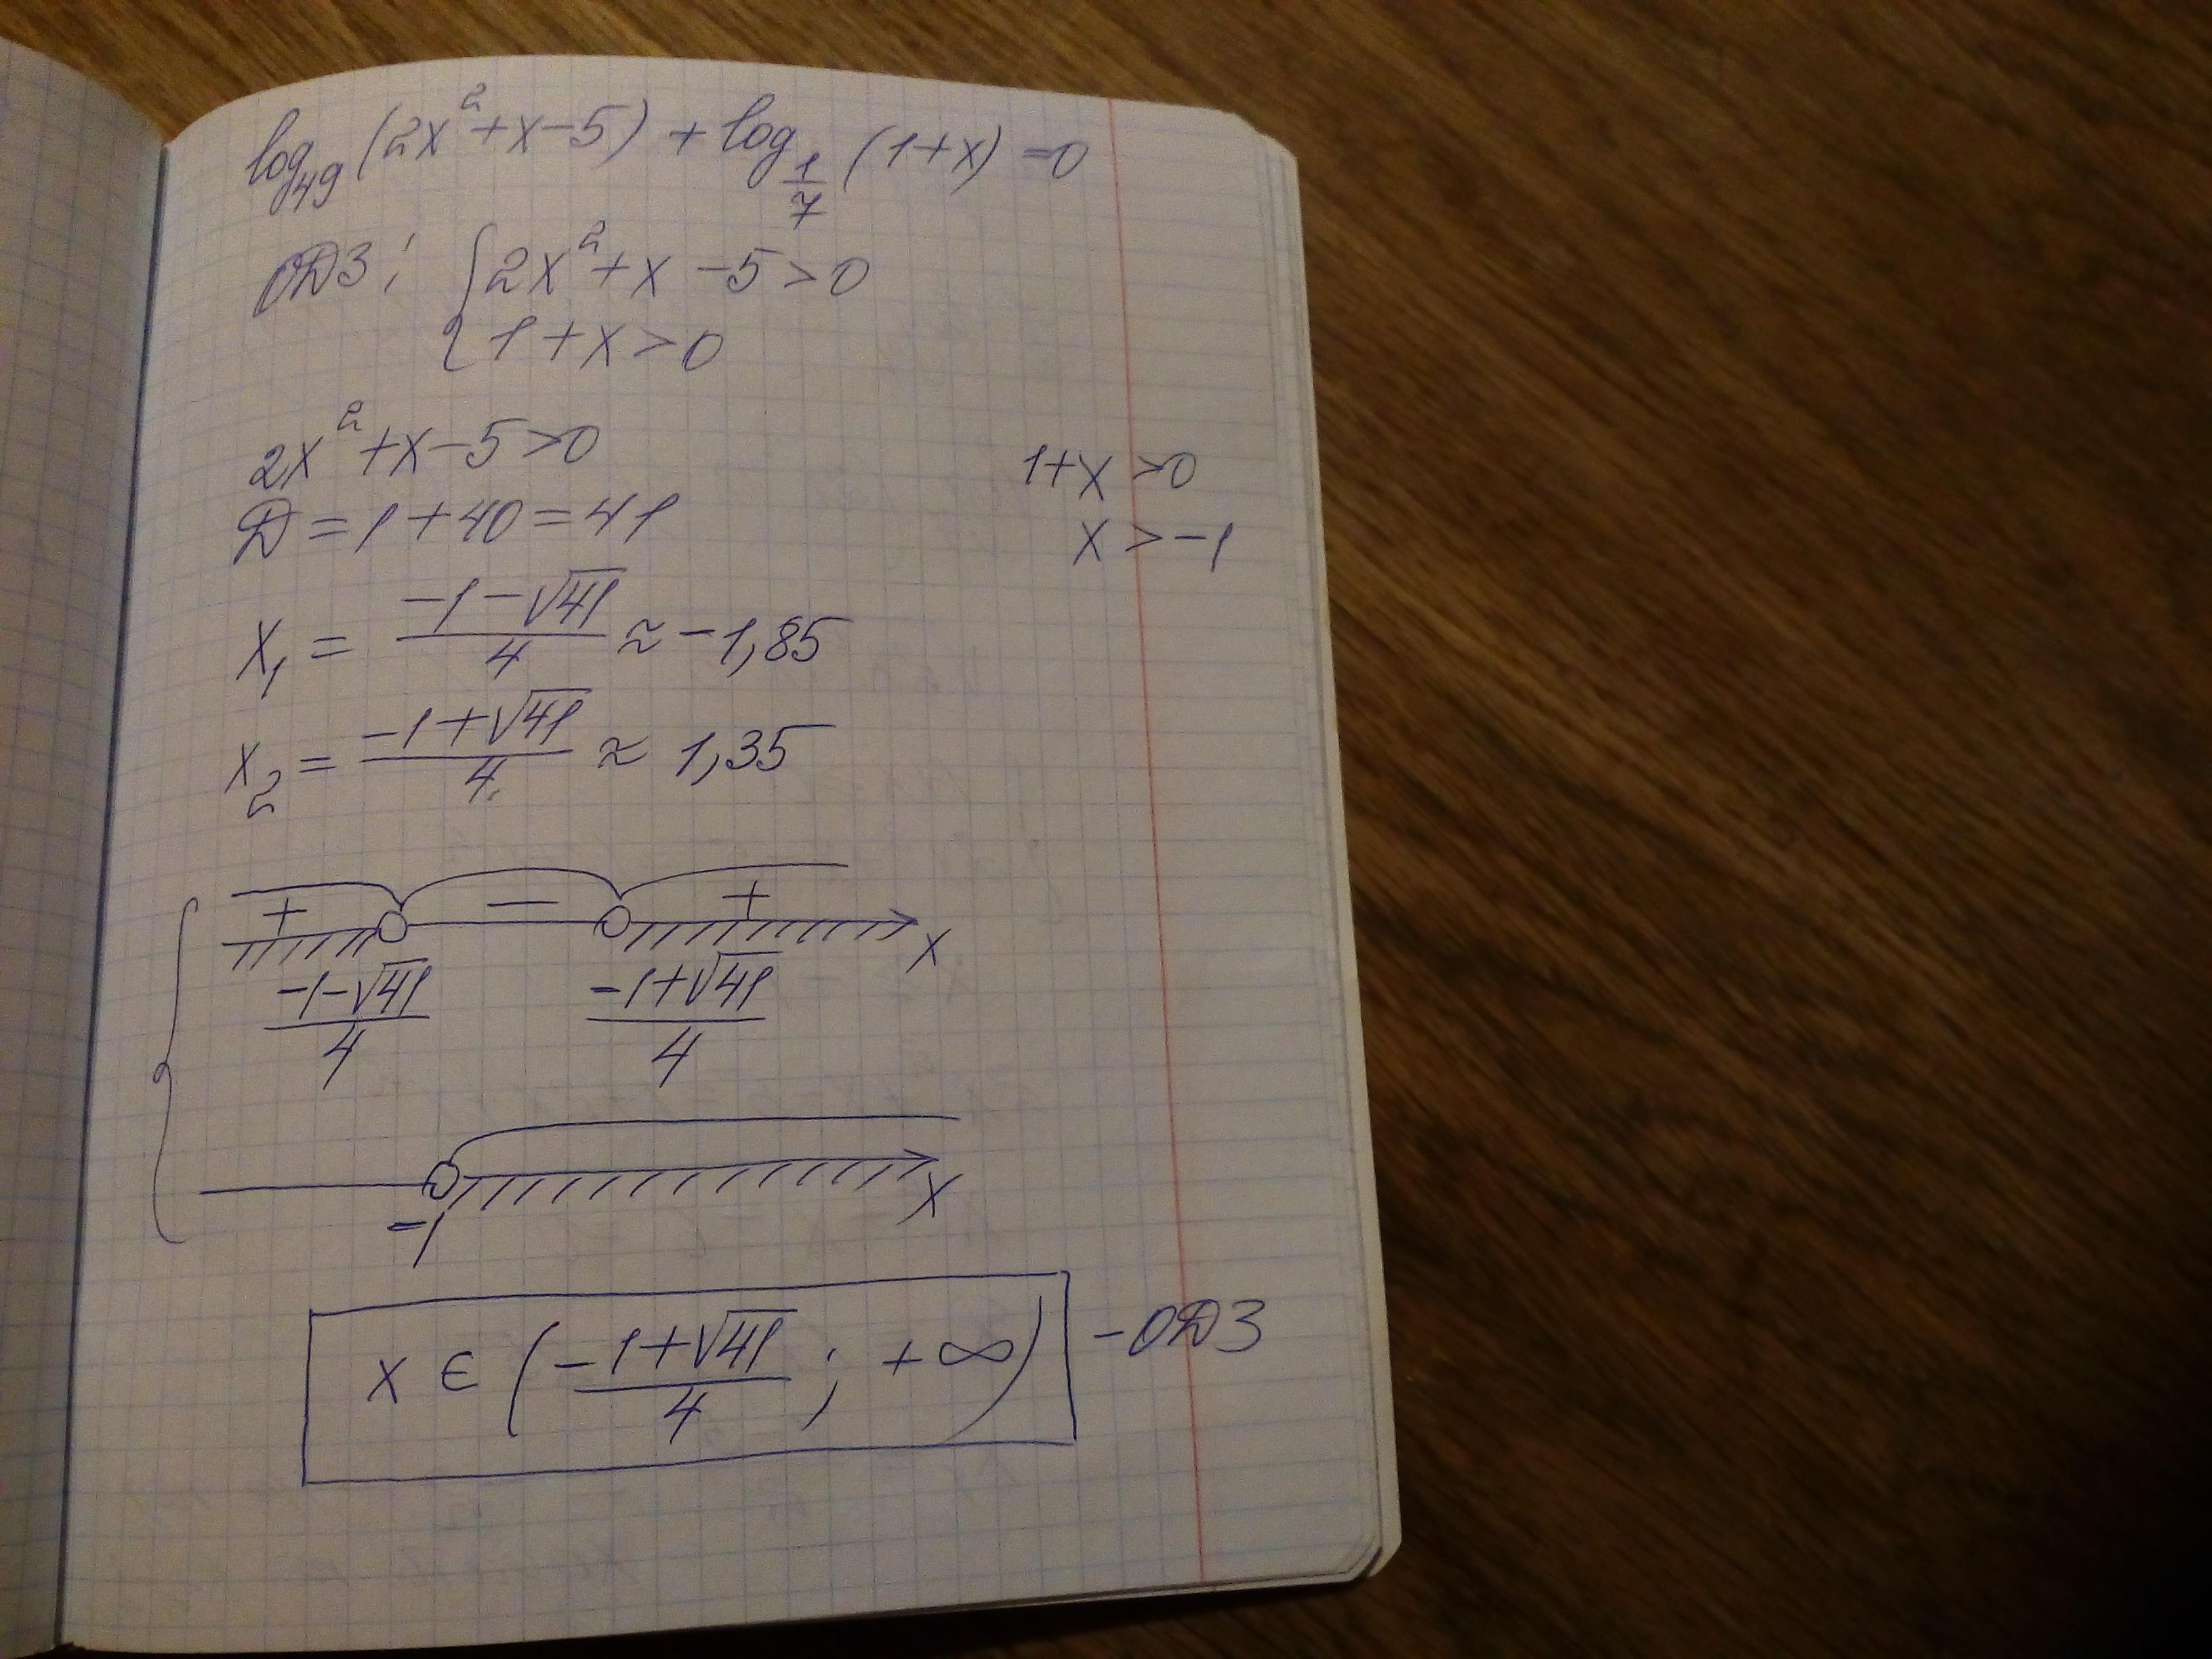 log₄₉(2x²+x-5) + log_{1/7}(1+x) = 0
ОДЗ: { 2x²+x-5>0
1+x>0
2x²+x-5>0
Д = 1+40 = 41
x₁ = (-1-√41)/4 ≈ -1,85
x₂ = (-1+√41)/4 ≈ 1,35
1+x>0
x>-1
+ − + x
(-1-√41)/4 (-1+√41)/4
x
-1
x ∈ ((-1+√41)/4 ; +∞) - ОДЗ